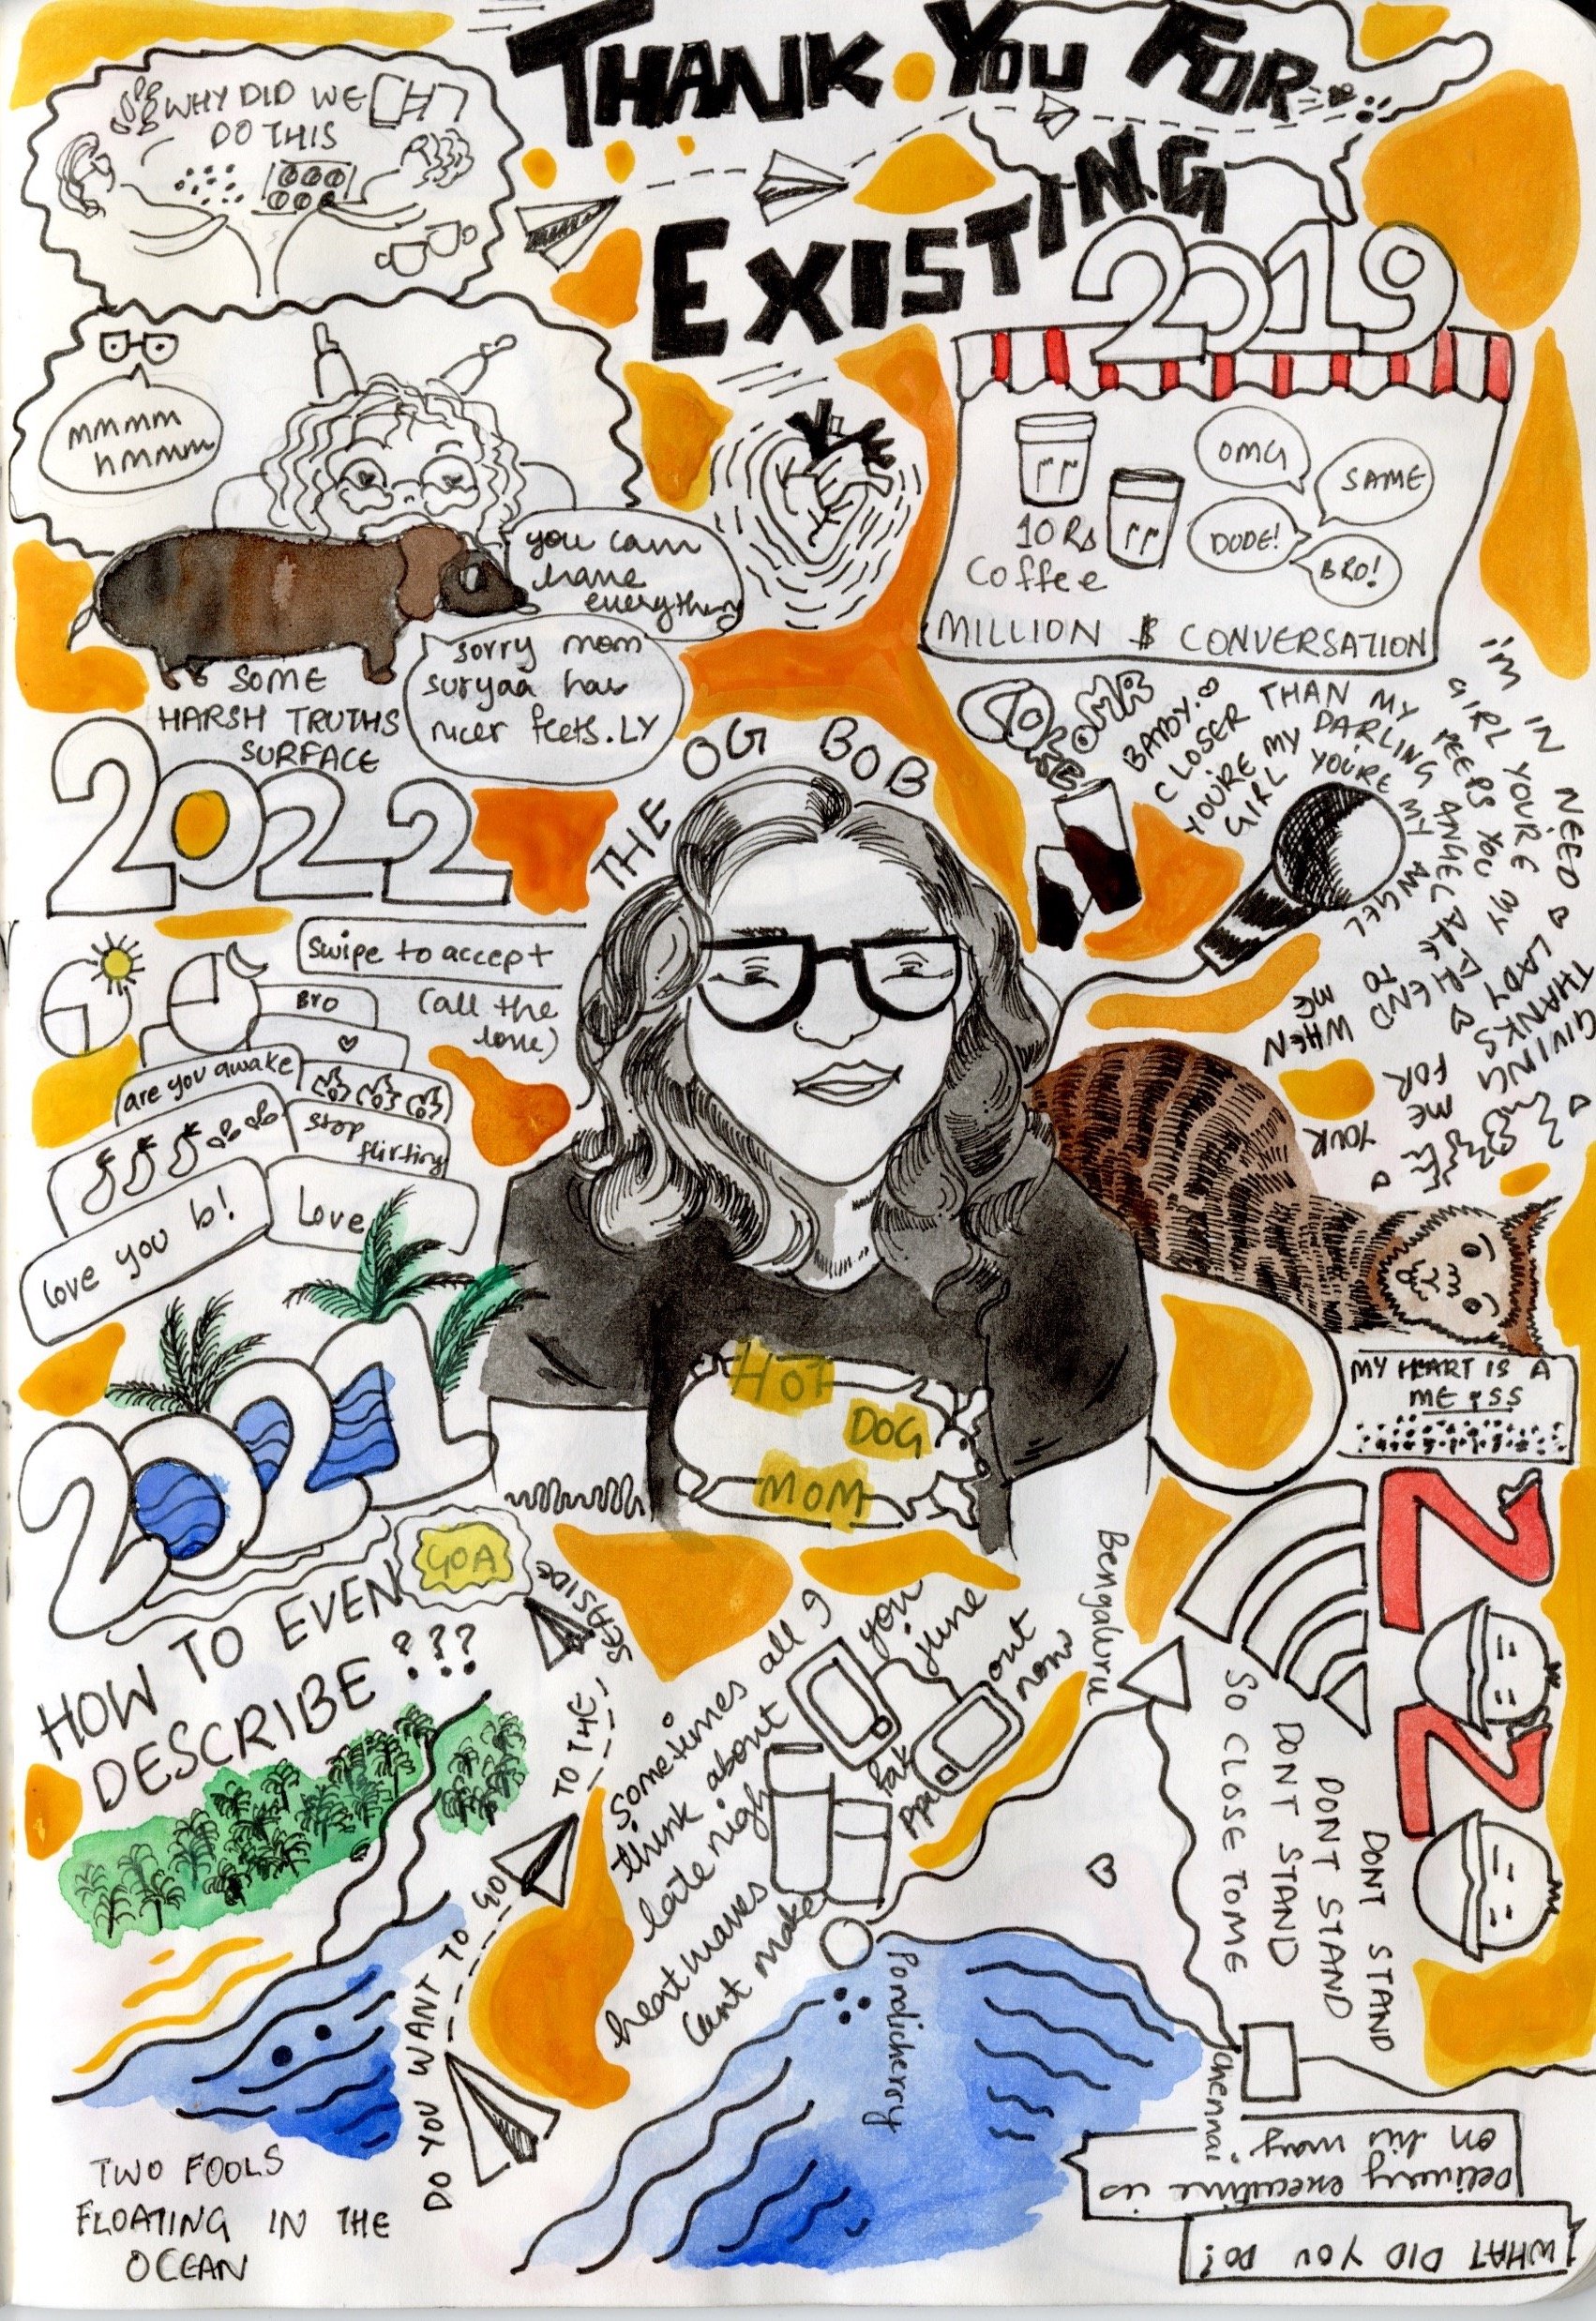 THANK YOU FOR
EXISTING
WHY DID WE
DO THIS
mmmm
hmmm
you can
have
everything
sorry mom
suryaa has
nicer feets. LY
SOME
HARSH TRUTHS
SURFACE
2022
2019
OMG
SAME
DUDE!
BRO!
10 Rs
Coffee
MILLION $ CONVERSATION
THE OG BOB
BABY.
CLOSER THAN MY PEEPS YOU
YOU'RE MY DARLING ANGEL
GIRL YOU'RE MY ANGEL
I'M IN NEED
GIRL YOU'RE MY
FRIEND
LADY
THANKS
GIVING
TO
ME
WHEN
FOR
ME
YOUR
Swipe to accept
(all the
love)
Bro
are you awake
stop
flirting
love you b!
Love
2021
GOA
HOW TO EVEN
DESCRIBE ???
HOT
DOG
MOM
MY HEART IS A
ME SS
2020
Bengaluru
DO YOU WANT TO GO TO THE SEASIDE
Sometimes all I
think about
you
late nigh
june
heatwaves
cant make
out
now
Pondicherry
Chennai
SO CLOSE TO ME
DONT STAND
DONT STAND
DONT STAND
TWO FOOLS
FLOATING IN THE
OCEAN
WHAT DID YOU DO!
Delivery executive is
on his way